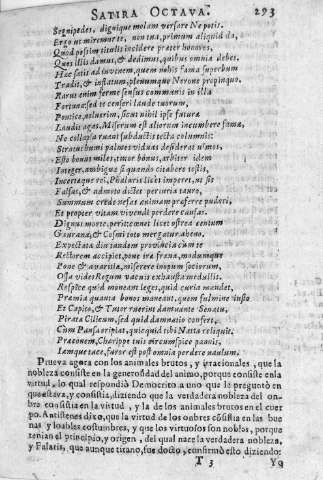 SATIRA OCTAVA. 293
Segnipedes, dignique molam versare Nepotis.
Ergo ut miremur te, non tua, primum aliquid da,
Quod possim titulis incidere præter honores,
Quos illis damus, & dedimus, quibus omnia debes.
Hæc satis ad iuvenem, quem nobis fama superbum
Tradit, & inflatum, plenumque Nerone propinquo.
Rarus enim ferme sensus communis in illa
Fortuna: sed te censeri laude tuorum,
Pontice, noluerim, sicut nihil ipse futuræ
Laudis agas. Miserum est aliorum incumbere famæ,
Ne collapsa ruant subductis tecta columnis:
Stratus humi palmes viduas desiderat ulmos.
Esto bonus miles, tutor bonus, arbiter idem
Integer. ambiguæ si quando citabere testis,
Incertæque rei, Phalaris licet imperet, ut sis
Falsus, & admoto dictet periuria tauro,
Summum crede nefas animam præferre pudori,
Et propter vitam vivendi perdere causas.
Dignus morte perit: cœnet licet ostrea centum
Gaurana, & Cosmi toto mergatur aheno.
Expectata diu tandem provincia cum te
Rectorem accipiet, pone iræ fræna, modumque
Pone & avaritiæ, miserere inopum sociorum,
Ossa vides Regum vacuis exhausta medullis.
Respice quid moneant leges, quid curia mandet,
Præmia quanta bonos maneant, quam fulmine iusto
Et Capito, & Tutor ruerint damnante Senatu,
Pirata Cilicum, sed quid damnatio confert,
Cum Pansa eripiat, quicquid tibi Natta reliquit.
Præconem, Chærippe tuis circumspice pannis,
Iamque tace, furor est post omnia perdere naulum.
Prueva agora con los animales brutos, y irracionales, que la
nobleza consiste en la generosidad del animo, porque consiste en la
virtud, lo qual respondiò Democrito a uno que le preguntò en
que estava, y consistia, diziendo que la verdadera nobleza del on-
bre consistia en la virtud, y la de los animales brutos en el cuer
po. Antistenes dixo, que la virtud de los onbres cõsistia en las bue
nas y loables costumbres, y que los virtuosos son nobles, porque
tenian el principio, y origen, del qual nace la verdadera nobleza,
y Falaris, que aunque tirano, fue docto, confirmò esto diziendo:
T 3 Yo